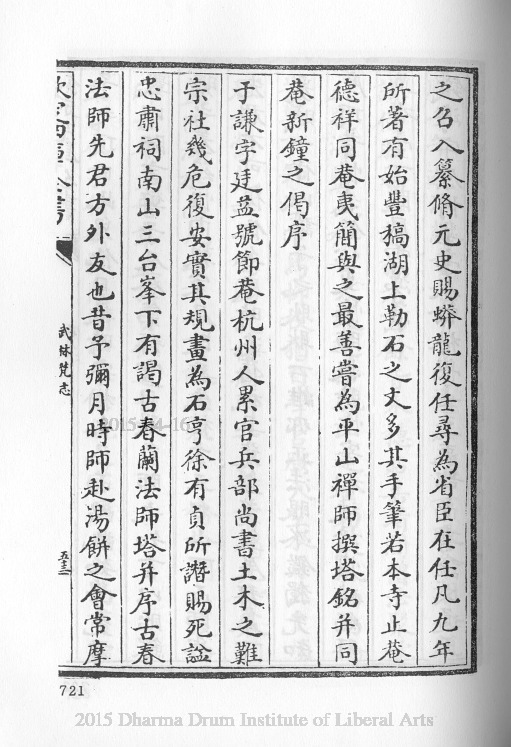 之召入纂脩元史賜蟒龍復任尋為省臣在任凡九年
所著有始豐稿湖上勒石之文多其手筆若本寺止菴
德祥同菴夷簡與之最善嘗為平山禪師撰塔銘并同
菴新鐘之偈序
于謙字廷益號節菴杭州人累官兵部尚書土木之難
宗社幾危復安實其規畫為石亨徐有貞所譖賜死諡
忠肅祠南山三台峯下有謁古春蘭法師塔并序古春
法師先君方外友也昔予彌月時師赴湯餅之會常摩
武林梵志
五十三
721
2015-04-16
2015 Dharma Drum Institute of Liberal Arts